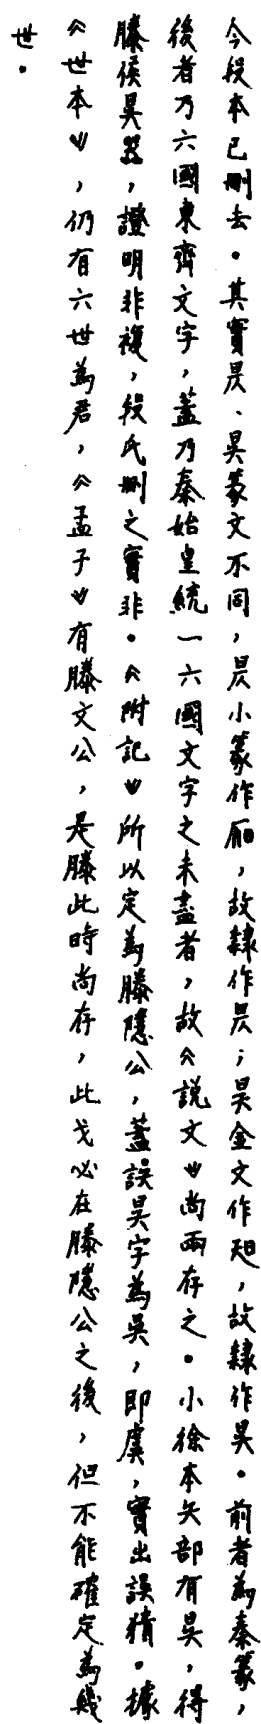 今段本已刪去。其實昃、昗篆文不同，昃小篆作，故隸作昃；昗金文作，故隸作昗。前者為秦篆，
後者乃六國東齊文字，蓋乃秦始皇統一六國文字之未盡者，故《說文》尚兩存之。小徐本矢部有昗，得
滕侯昗器，證明非複，段氏刪之實非。《附記》所以定為滕隱公，蓋誤昗字為吳，即虞，實出誤猜。據
《世本》，仍有六世為君，《孟子》有滕文公，是滕此時尚存，此戈必在滕隱公之後，但不能確定為幾
世。